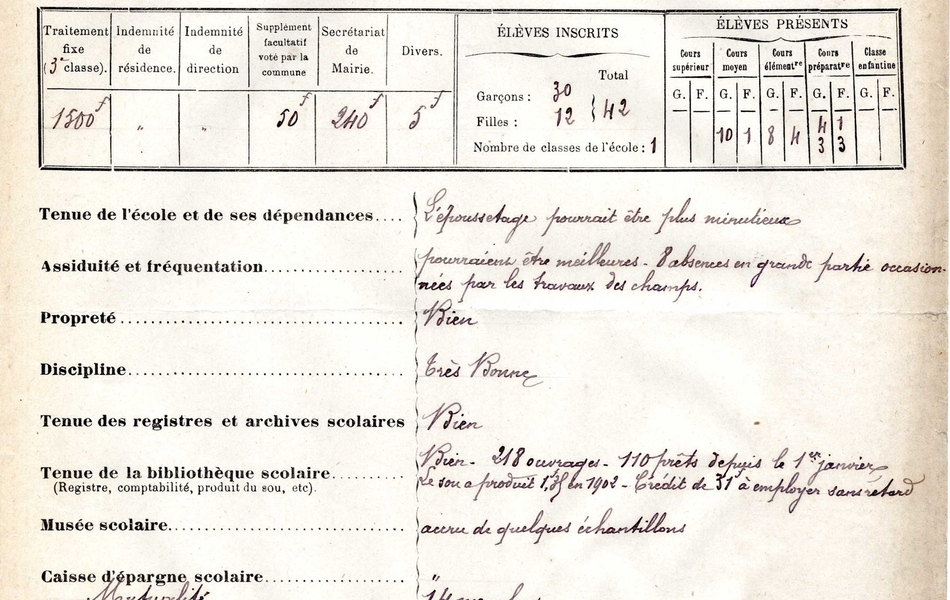 Traitement fixe (3e classe).
Indemnité de résidence.
Indemnité de direction
Supplément facultatif voté par la commune
Secrétariat de Mairie.
Divers.
ÉLÈVES INSCRITS
ÉLÈVES PRÉSENTS
Cours supérieur
Cours moyen
Cours élémentre
Cours préparatre
Classe enfantine
G. F. G. F. G. F. G. F. G. F.
1500f " " 50f 240f 5f
Total
Garçons : 30
Filles : 12 } 42
Nombre de classes de l'école : 1
10 1 8 4 4 1
3 3
Tenue de l'école et de ses dépendances.... L'époussetage pourrait être plus minutieux
Assiduité et fréquentation.................. pourraient être meilleures - 8 absences en grande partie occasion-
nées par les travaux des champs.
Propreté.................. Bien
Discipline.................. Très Bonne
Tenue des registres et archives scolaires Bien
Tenue de la bibliothèque scolaire........ Bien - 218 ouvrages - 110 prêts depuis le 1er janvier
(Registre, comptabilité, produit du sou, etc). Le sou a produit en 1902 - Crédit de 31f à employer sans retard
Musée scolaire.................. accru de quelques échantillons
Caisse d'épargne scolaire.................. "
Mutualité 14